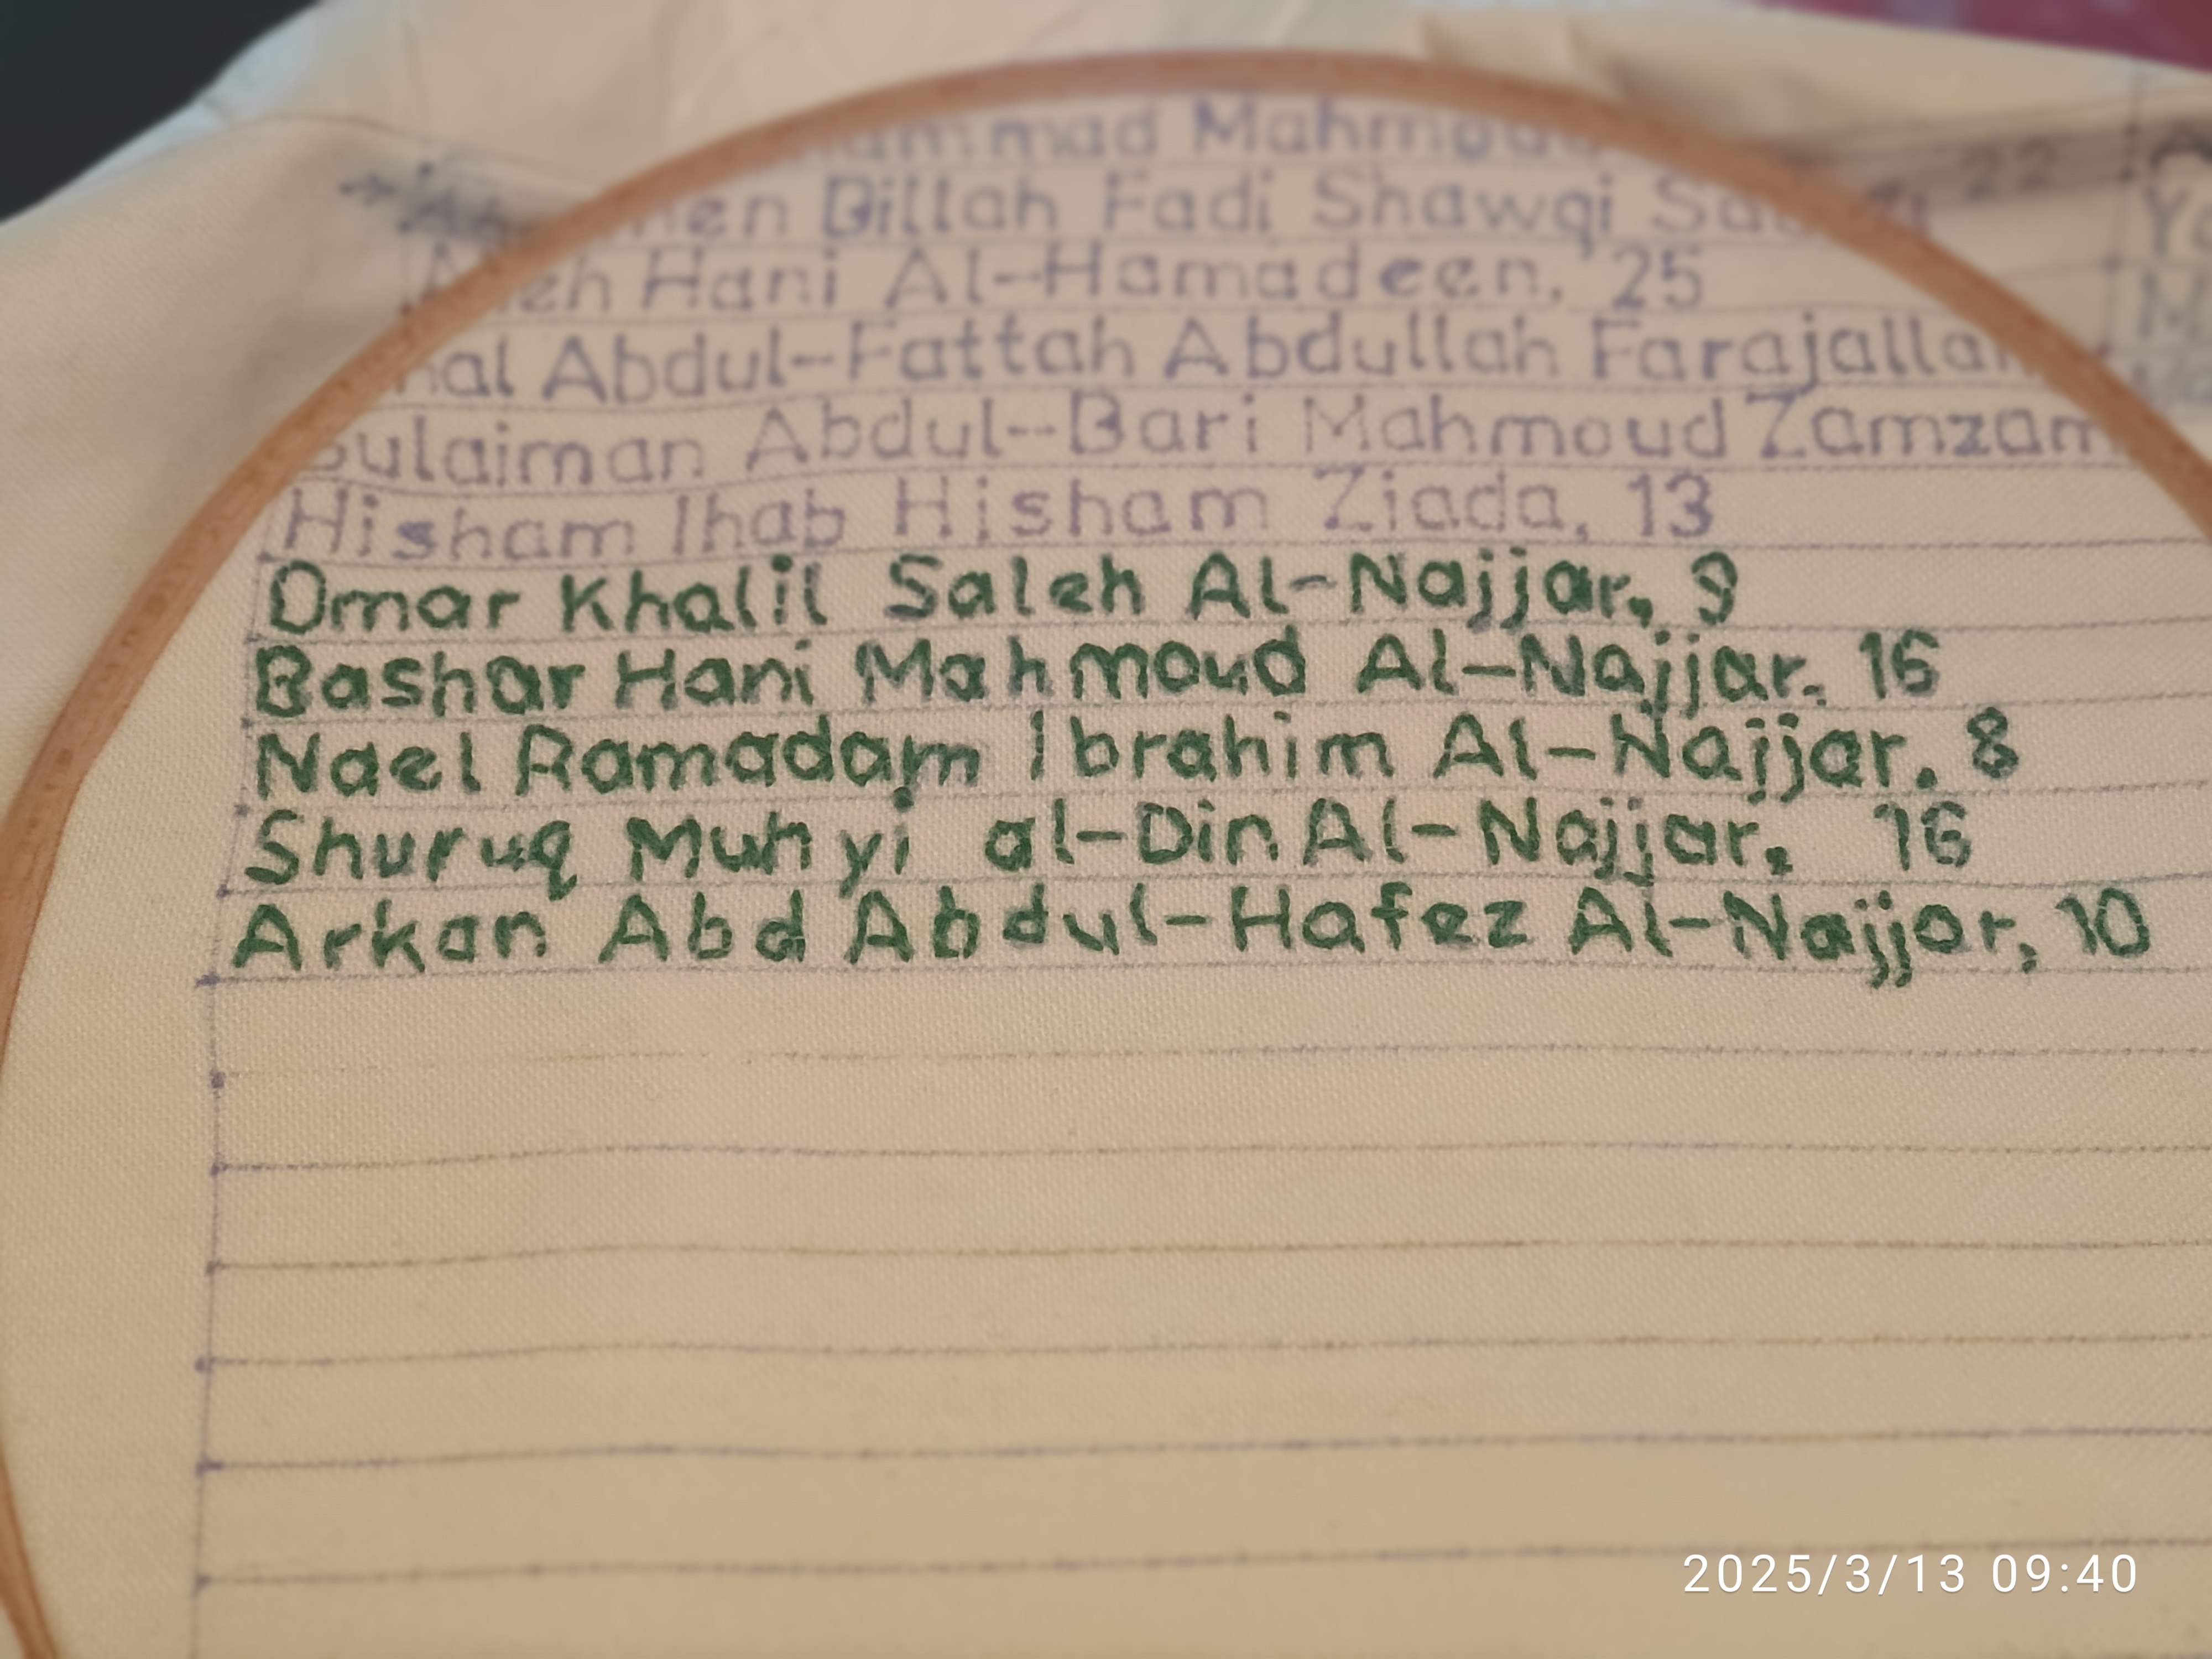 Mahmoud
Billah Fadi Shawqi 22
Hani Al-Hamadeen, 25
Abdul-Fattah Abdullah Farajallah
Sulaiman Abdul-Bari Mahmoud Zamzam
Hisham Ihab Hisham Ziada, 13
Omar Khalil Saleh Al-Najjar, 9
Bashar Hani Mahmoud Al-Najjar, 16
Nael Ramadam Ibrahim Al-Najjar, 8
Shuruq Muhyi al-Din Al-Najjar, 16
Arkan Abd Abdul-Hafez Al-Najjar, 10
2025/3/13 09:40